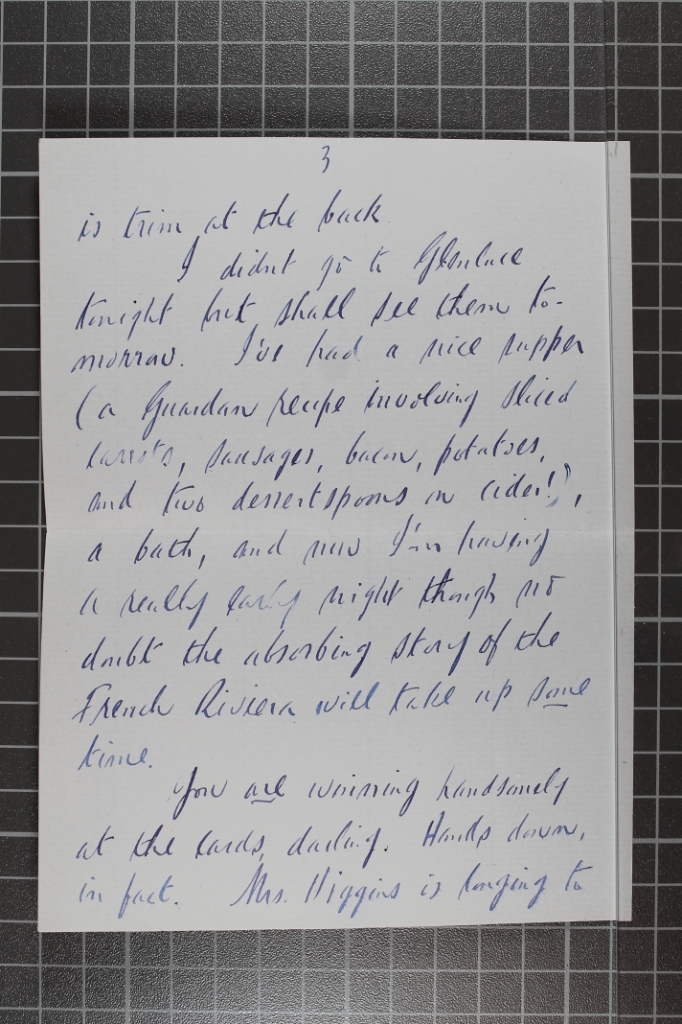 3
is trim at the back
I didnt go to Glenluce
tonight but shall see them to-
morrow. I've had a nice supper
(a Guardan recipe involving sliced
carrots, sausages, bacon, potatoes,
and two dessertspoons on cider!),
a bath, and now I'm having
a really early night though no
doubt the absorbing story of the
French Riviera will take up some
time.
You are winning handsomely
at the cards, darling. Hands down,
in fact. Mrs. Higgins is longing to